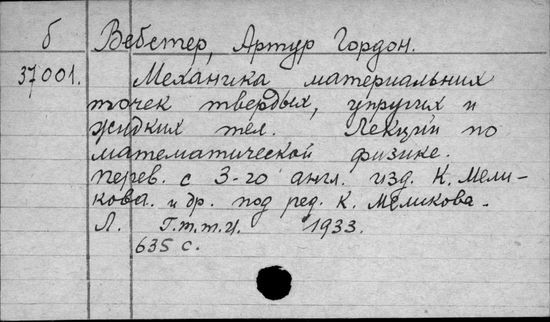 б Вебстер, Артур Гордон.
37001. Механика материальних
точек твердых, упругих и
жидких тел. Лекции по
математической физике.
перев. с 3-го англ. изд. К. Мели-
кова. и др. под ред. К. Меликова.
Л. Г.т.т.и. 1933.
635 с.